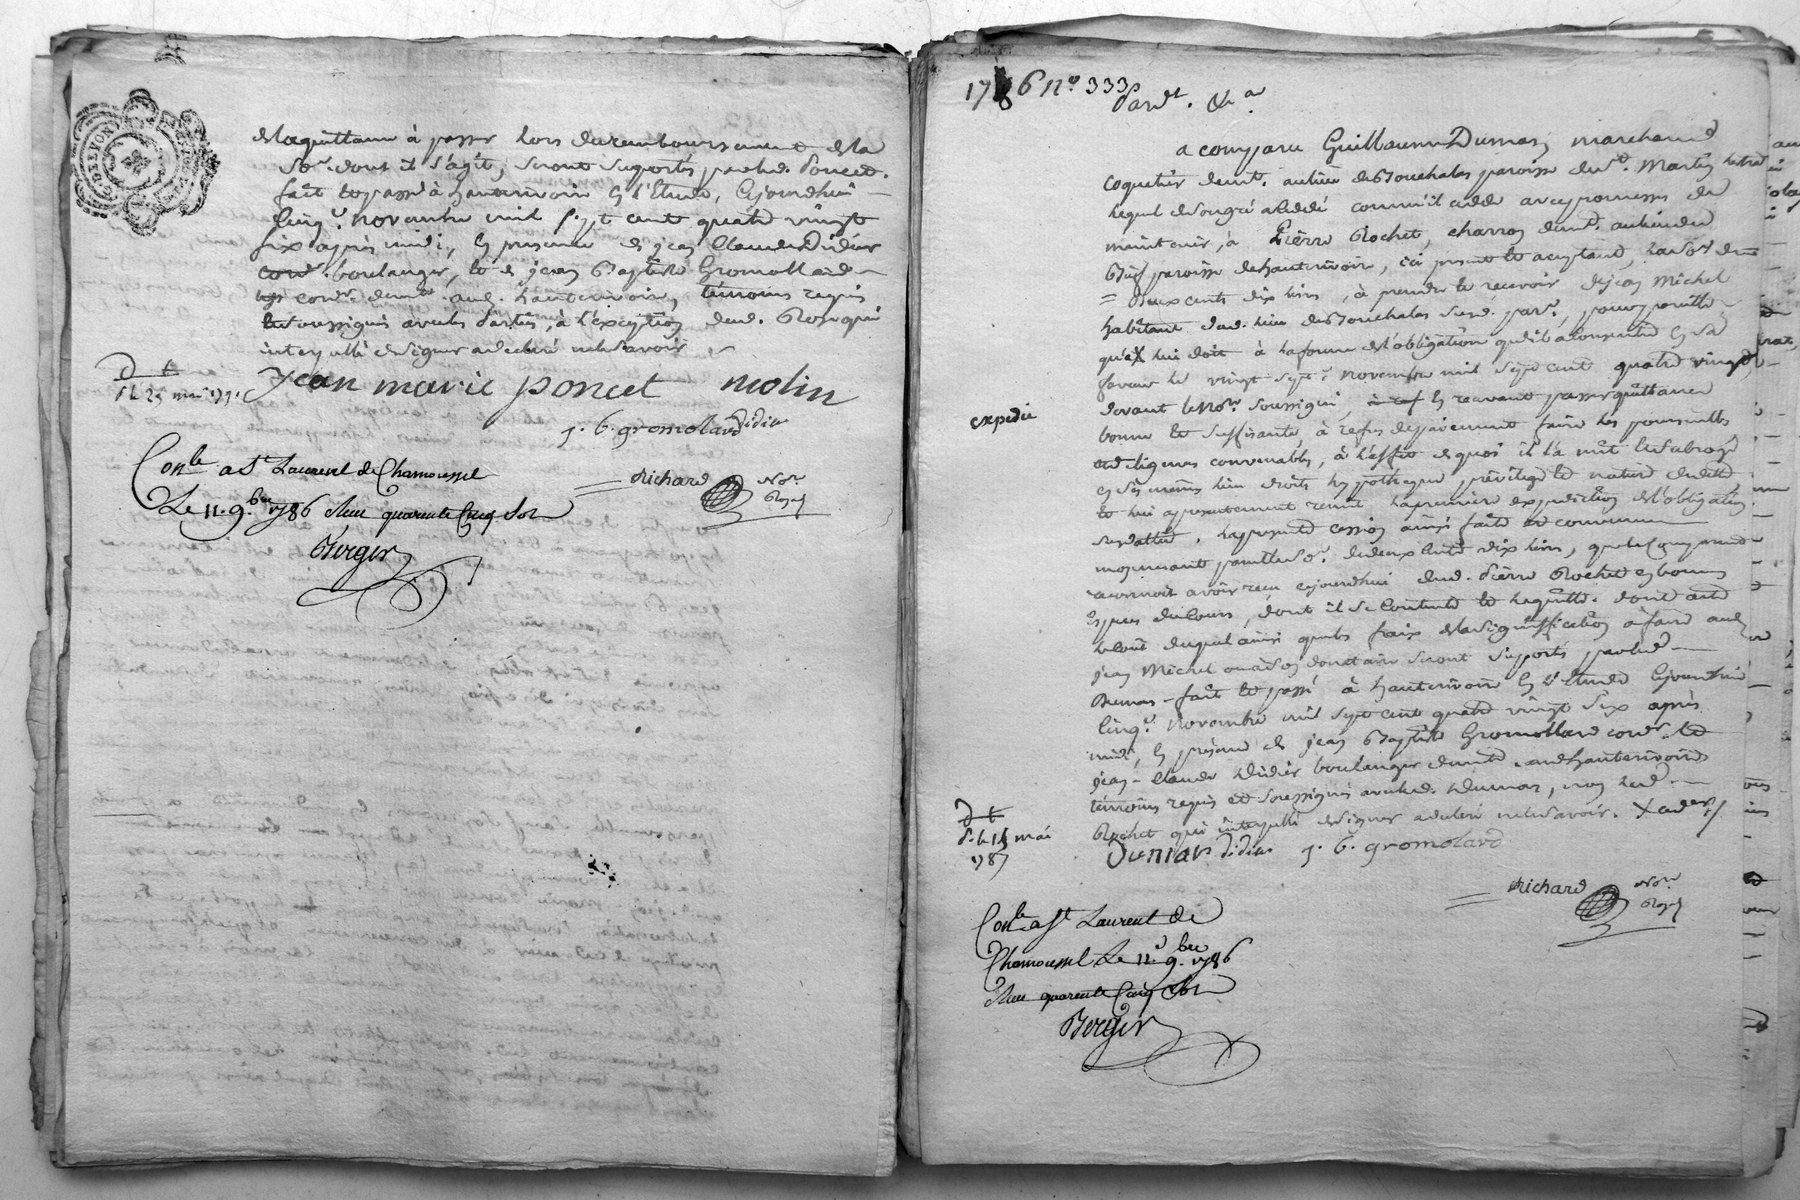 de la quittance à passer lors du remboursement de la
So.e dont il s'agit, seront suportés par led. Poncet.
fait et passé à hauterivoire En l'Etude, Cejourdhui
Cinq.e novembre mil sept cent quatre vingt
six après midi, En presence de jean Claude Didier
boulanger, et de jean Baptiste Gromollard
cord.r demt. aud. hauterivoire, témoins requis
et soussignés avec les parties, à l'exception dud. qui
interpellé de signer a déclaré ne le savoir
d t
d. le 25 mai 1791
Jean marie poncet molin
j. b. gromolard Didier
Conlé a St Laurent de Chamousset
Le 11. 9.bre 1786 Reçu quarente Cinq Sols
Richard Nore Royal
Berger
1786 n° 333
Pardt. &a
a comparu Guillaume Dumas, marchand
coquetier demt. au lieu de Bouchalas paroisse de St. Martin
lequel de son gré a cédé comme il cède avec promesses de
maintenir, à Pierre Rochet, charron demt. au lieu du
paroisse de hauterivoire, ici present et acceptant, la So.e de
= Deux cents dix livres, à prendre et recevoir de jean Michel
habitant dud. lieu de Bouchalas susd. par.e, pour pareille
qu'il lui doit à la forme de l'obligation qu'il a consentie En sa
faveur le vingt sept.e novembre mil sept cent quatre vingt
devant le No.re soussigné, En recevant passer quittance
expedié
bonne et suffisante, à refus de payement faire les poursuites
et diligences convenables, à l'effet de quoi il l'a mis et subrogé
En ses mêmes lieu droits hypotheque privilege et nature de dette
et lui a presentement remis la premiere expedition de l'obligation
. la presente cession ainsi faite et convenue
moyennant pareille So.e de deux cents dix livres, que le Comparant
reconnoit avoir reçu cejourdhui dud. Pierre Rochet en bonnes
Especes du Cours, dont il se Contente et le quitte. dont acte
le Coût duquel ainsi que les frais de la signiffication à faire aud.
jean Michel ou à son domicile seront suportés par led.
Dumas - fait et passé à hauterivoire En l'Etude Cejourdhui
Cinq.e novembre mil sept cent quatre vingt six après
midi, En présence de jean Baptiste Gromollard cord.r et
jean-Claude Didier boulanger demt. aud. hauterivoire
témoins requis et soussignés avec led. Dumas, non led.
Rochet qui interpellé de signer a déclaré ne le savoir.
d t
d. le 15 mai
1787
Dumas Didier j. b. gromolard
Richard Nore Royal
Conlé a St Laurent de
Chamousset Le 11. 9.bre 1786
Reçu quarente Cinq Sols
Berger